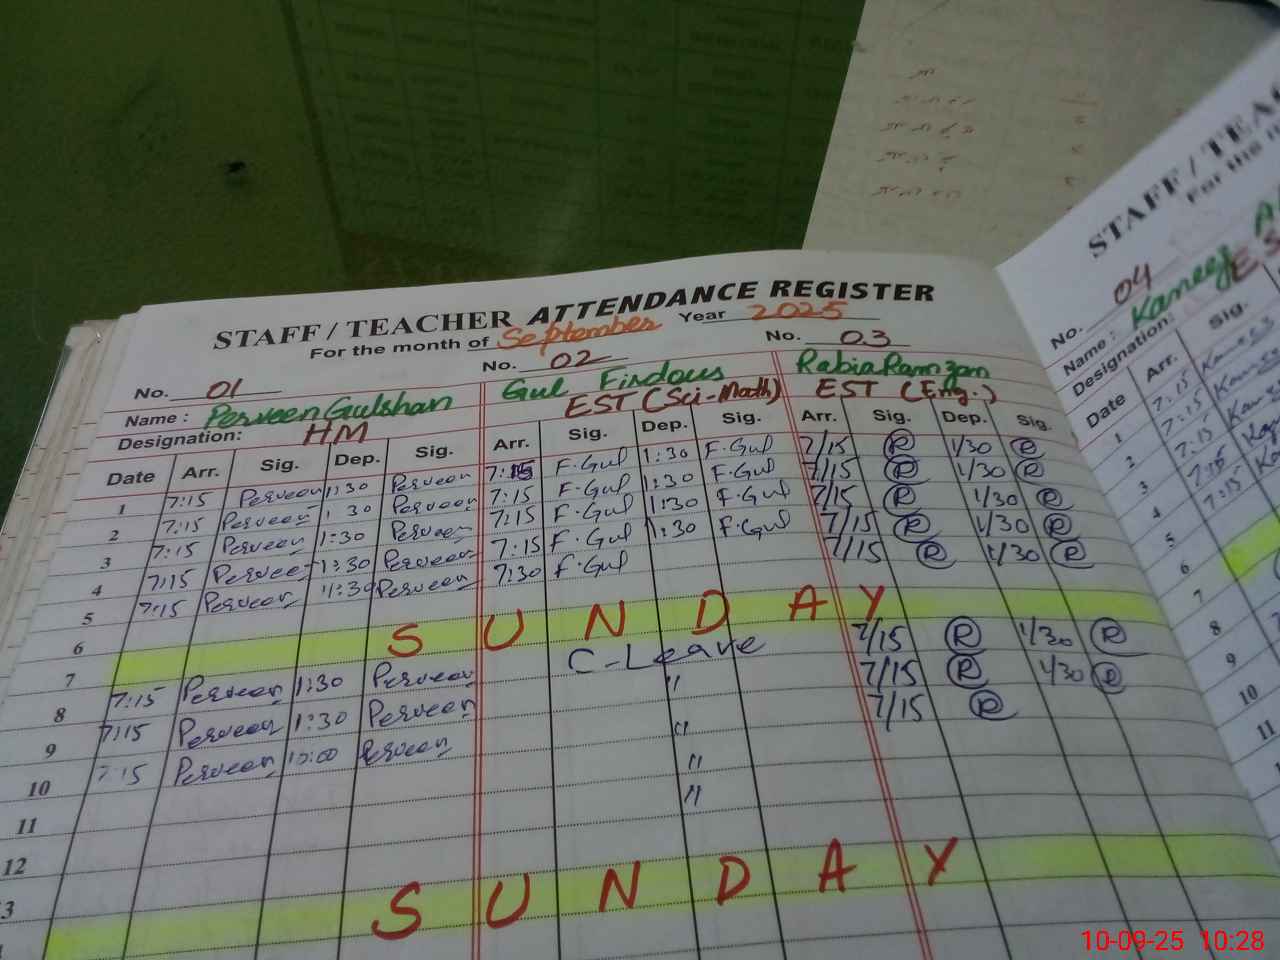 STAFF / TEACHER ATTENDANCE REGISTER
For the month of September Year 2025
No. 01 No. 02 No. 03
Name : Perveen Gulshan Gul Firdous Rabia Ramzan
Designation: HM EST (Sci-Math) EST (Eng.)
Date Arr. Sig. Dep. Sig. Arr. Sig. Dep. Sig. Arr. Sig. Dep. Sig.
1 7:15 Perveen 1:30 Perveen 7:15 F.Gul 1:30 F.Gul 7/15 R 1/30 R
2 7:15 Perveen 1:30 Perveen 7:15 F.Gul 1:30 F.Gul 7/15 R 1/30 R
3 7:15 Perveen 1:30 Perveen 7:15 F.Gul 1:30 F.Gul 7/15 R 1/30 R
4 7:15 Perveen 1:30 Perveen 7:15 F.Gul 1:30 F.Gul 7/15 R 1/30 R
5 7:15 Perveen 1:30 Perveen 7:30 F.Gul 7/15 R 1/30 R
6
7 SUNDAY
8 7:15 Perveen 1:30 Perveen C-Leave 7/15 R 1/30 R
9 7:15 Perveen 1:30 Perveen " 7/15 R 1/30 R
10 7:15 Perveen 10:00 Perveen " 7/15 R
11 "
12 "
3
SUNDAY
STAFF / TEAC
For the
No. 04
Name : Kaneez
Designation: ES
Date Arr. Sig.
1 7:15 Kaneez
2 7:15
3 7:15
4 7:15
5 7:15
6
7
8
9
10
11
10-09-25 10:28